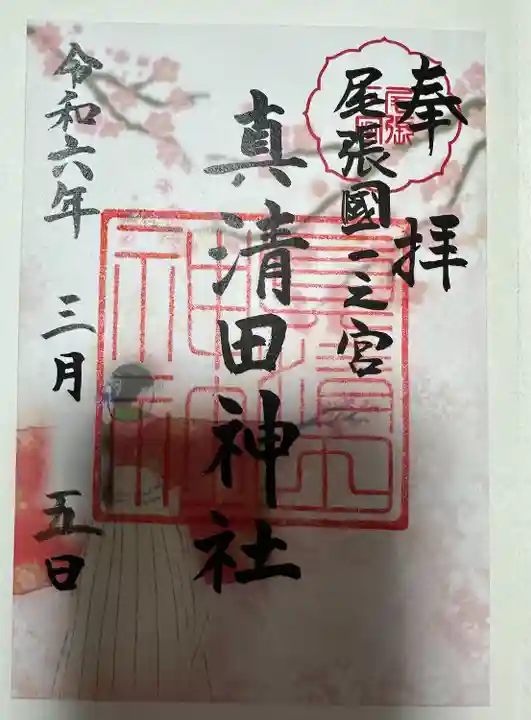 奉拝
尾張國一之宮
真清田神社
令和六年
三月
五日